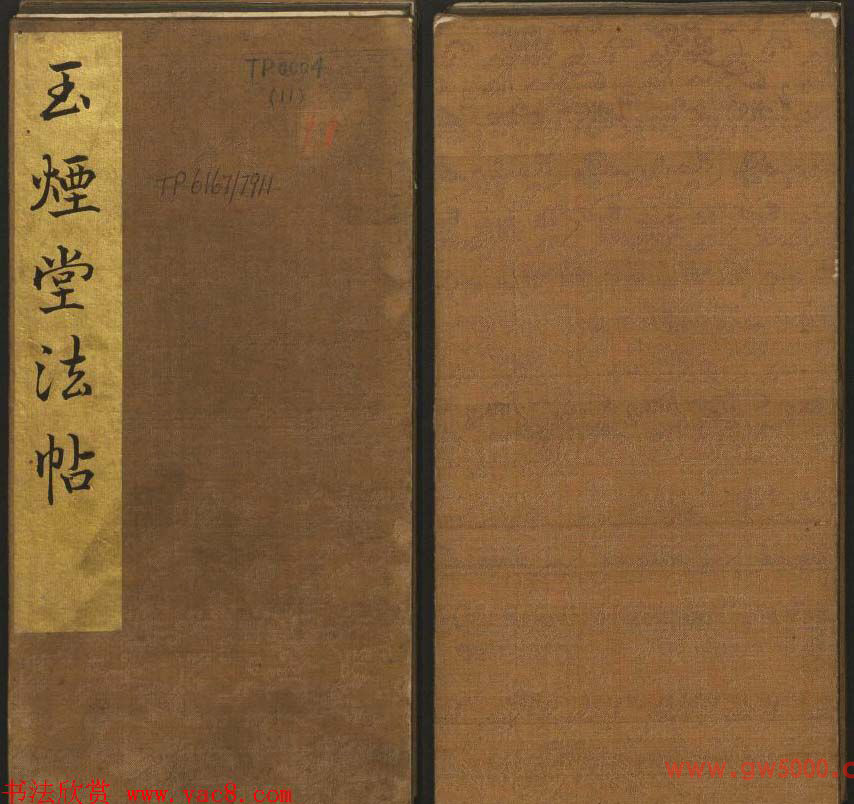 玉煙堂法帖
TP6004
(11)
TP6167/7911
书法欣赏 www.yac8.com
www.gw5000.c